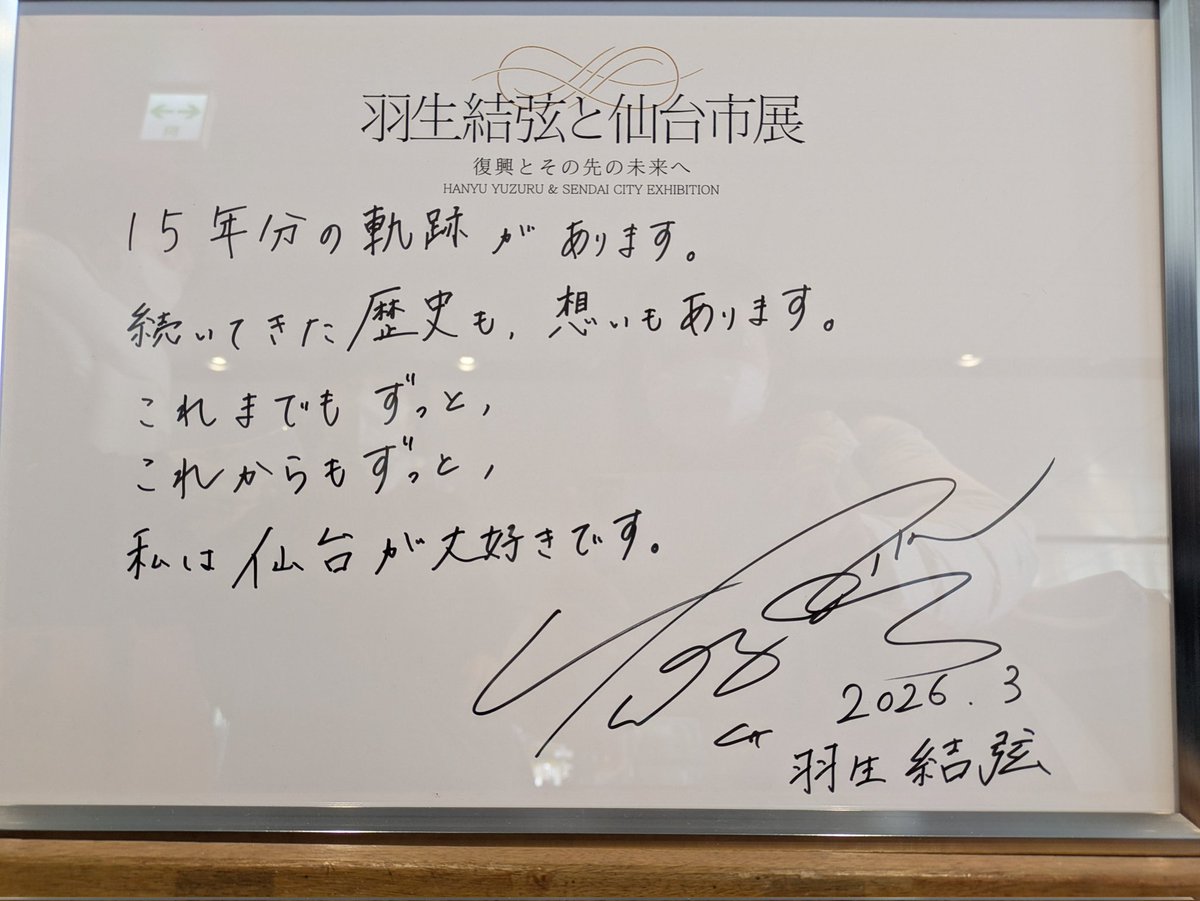 羽生結弦と仙台市展
復興とその先の未来へ
HANYU YUZURU & SENDAI CITY EXHIBITION
15年分の軌跡があります。
続いてきた歴史も,想いもあります。
これまでもずっと,
これからもずっと,
私は仙台が大好きです。
2026.3
羽生結弦